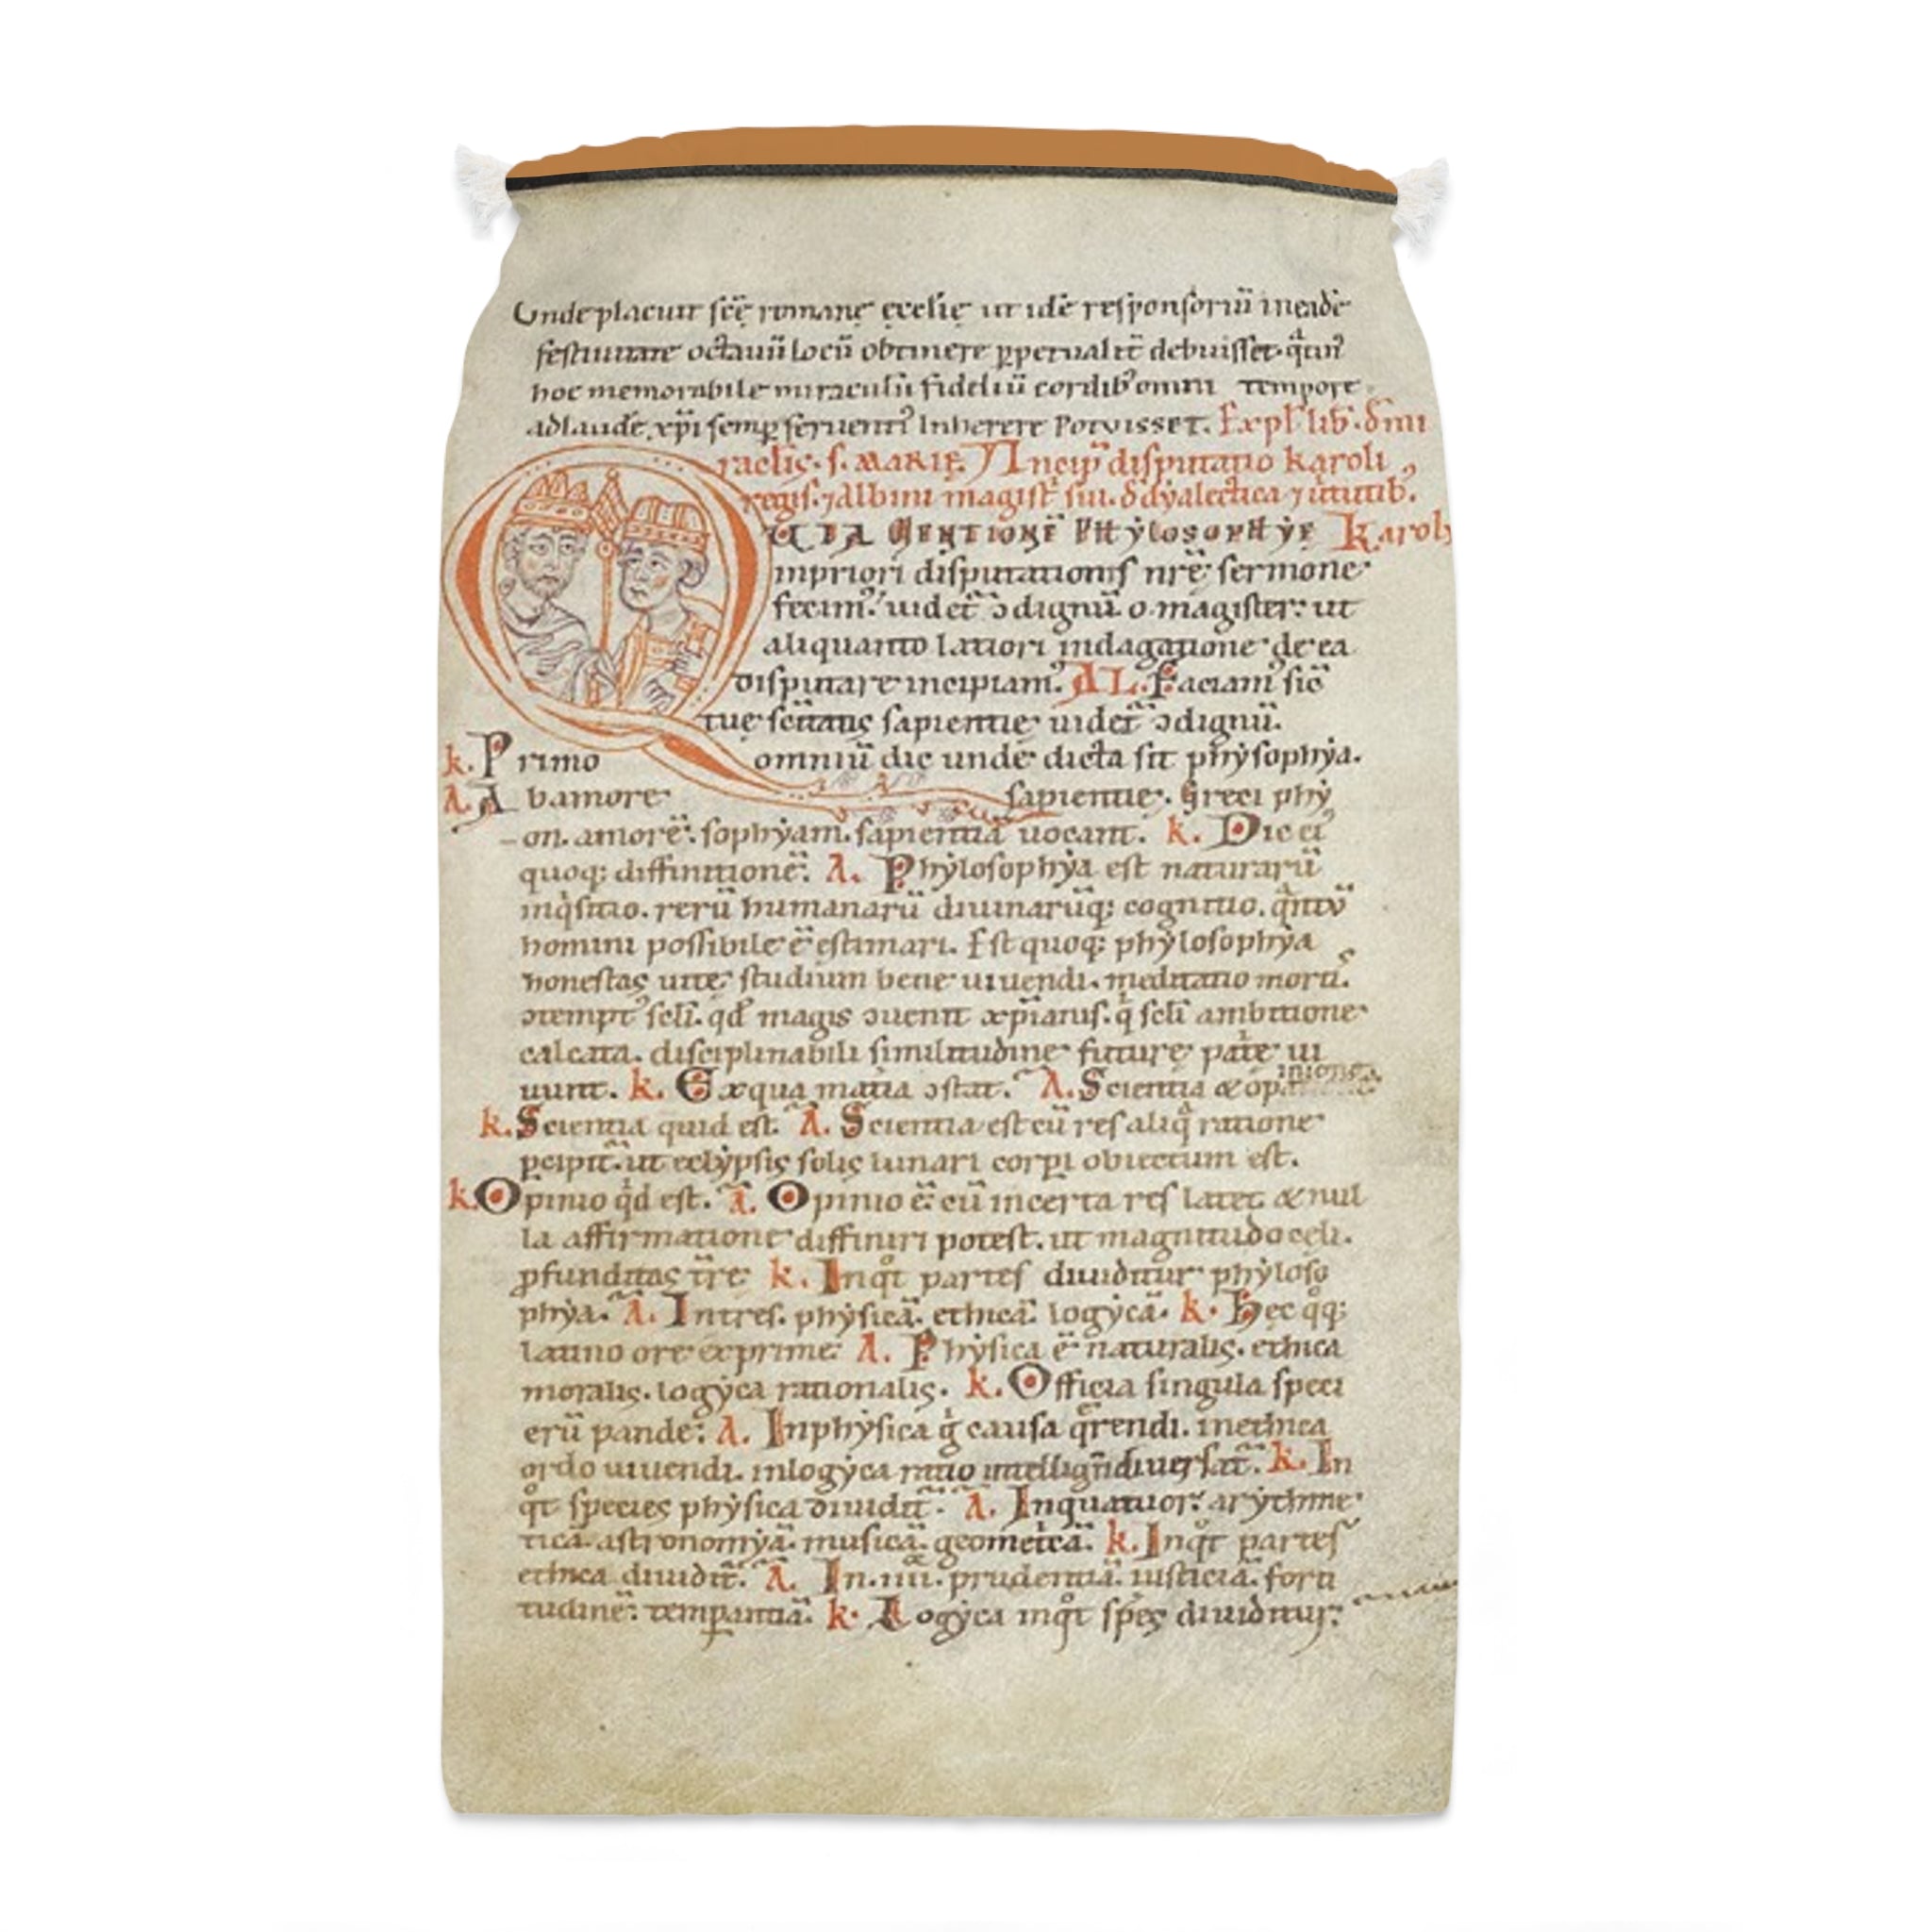 Unde placuit scẽ romanę ęcclię ut idẽ responsoriũ in eadẽ
festiuitate octauũ locũ obtinere ꝑpetualit̃ debuisset. q̃tin᾽
hoc memorabile miraculũ fideliũ cordib᾽ omni tempore
ad laudẽ xp̃i semꝑ seruent᾽ inherere potuisset. Expl̃ lib̃. dñi
raclis. s. MARIĘ. Incip̃ disputatio karoli
regis. ⁊ albini magist̃ sui. d̃ dyalectica ⁊ uirtutib᾽.
QUIA MENTIONẼ PHYLOSOPHYE Karoly
in priori disputationis nrẽ sermone
fecim᾽. uidet̃ ↄdignũ o magister. ut
aliquanto latiori indagatione de ea
disputare incipiam᾽. AL. Faciam᾽ sic̃
tuę scũtans sapientie uidet̃ ↄdignũ.
k. Primo omniũ dic unde dicta sit phẏsophẏa.
A. Ab amore sapientie. Greci phẏ
on. amorẽ. sophẏam. sapientiã uocant. k. Dic ei᾽
quoq; diffinitionẽ. A. Phẏlosophẏa est naturarũ
inq̃sitio. rerũ humanarũ diuinarũq; cognitio. q̃ntũ
homini possibile ẽ estimari. Est quoq; phẏlosophẏa
honestas uite. studium bene uiuendi. meditatio mortis.
ↄtempt᾽ scl̃i. qd̃ magis ↄuenit xp̃ianis. q̃ scl̃i ambitione
calcata. disciplinabili similitudine future patrie ui
uunt. k. Ex qua materia ↄstat. A. Scientia & opinione
k. Scientia quid est. A. Scientia est cũ res aliq̃ ratione
ꝑcipit̃. ut eclẏpsis solis lunari corꝑi obiectum est.
k. Opinio q̃d est. A. Opinio ẽ cũ incerta res latet & nul
la affirmatione diffiniri potest. ut magnitudo celi.
ꝓfunditas t̃re k. In qͦt partes diuiditur phẏloso
phẏa. A. In tres. phẏsicã. ethicã. logẏcã. k. Hec qͦq;
latino ore exprime A. Phẏsica ẽ naturalis. ethica
moralis. logẏca rationalis. k. Officia singula speci
erũ pande. A. In phẏsica g̃ causa q̃rendi. in ethica
ordo uiuendi. in logẏca ratio intelligñdi uersat̃. k. In
qͦt species phẏsica diuidit̃. A. In quatuor. arẏthme
ticã. astronomẏã. musicã. geometricã. k. In qͦt partes
ethica diuidit̃. A. In .iiii. prudentiã. iusticiã. forti
tudinẽ. temꝑantiã. k. Logẏca in qͦt sp̃es diuiditur.